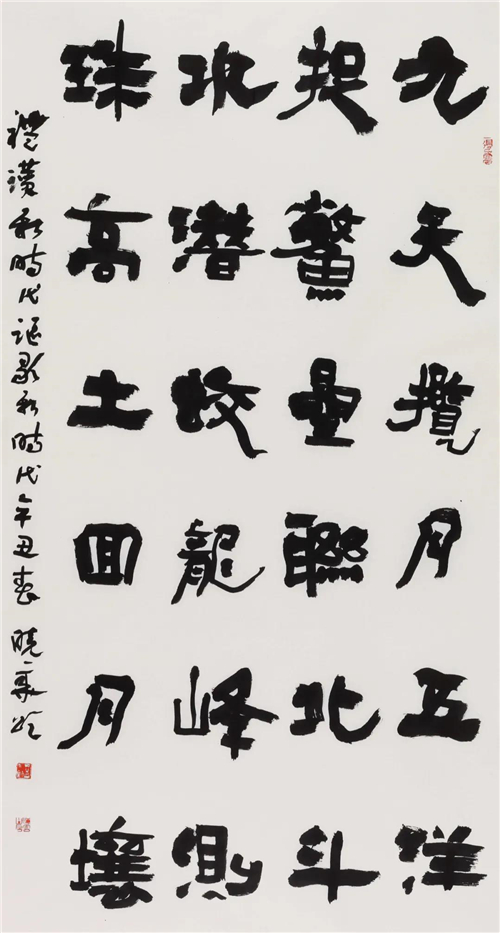 九天攬月五洋
捉鱉星聯北斗
水潛蛟龍峰測
珠高土回月壤
禮讚新時代謳歌新時代辛丑春 曉